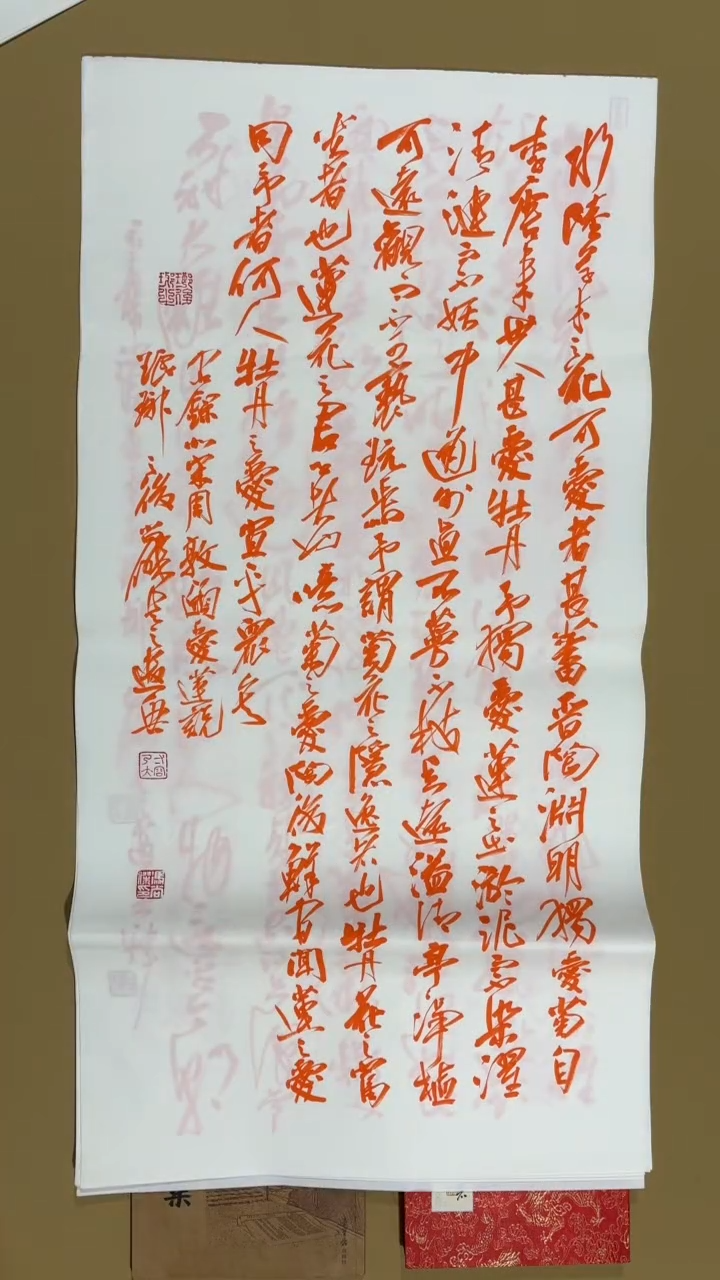 水陸草木之花可愛者甚蕃晉陶淵明獨愛菊自
李唐来世人甚愛牡丹予獨愛蓮之出淤泥而不染濯
清漣而不妖中通外直不蔓不枝香遠溢清亭亭淨植
可遠觀而不可褻玩焉予謂菊花之隱逸者也牡丹花之富
貴者也蓮花之君子者也噫菊之愛陶後鮮有聞蓮之愛
同予者何人牡丹之愛宜乎衆矣
錄北宋周敦頤愛蓮說
琅琊之後
集